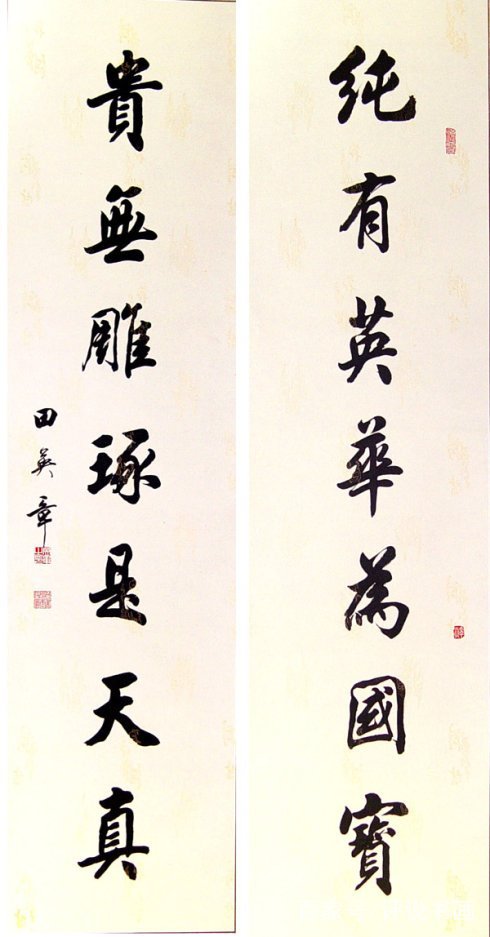 純有英華為國寶
貴無雕琢是天真
田英章